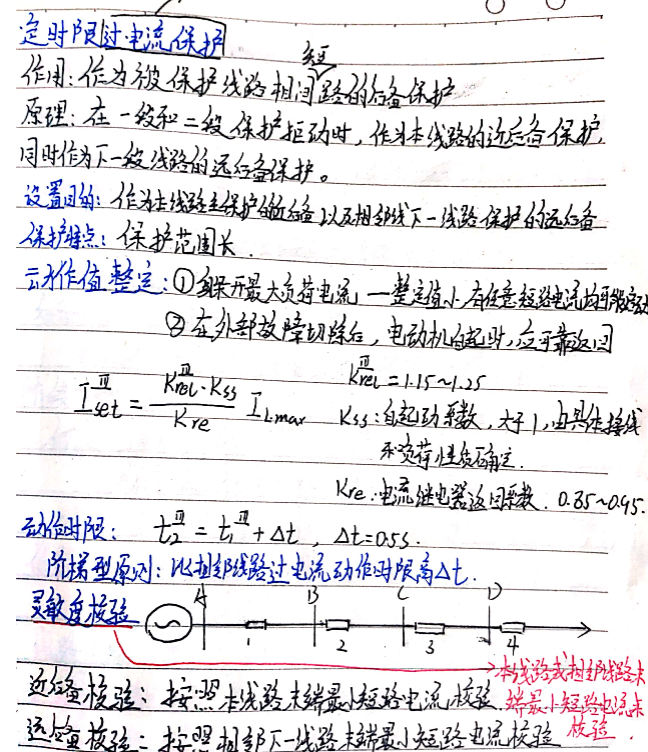 定时限过电流保护
作用：作为被保护线路相间短路的后备保护
原理：在一段和二段保护拒动时，作为本线路的近后备保护，
同时作为下一级线路的远后备保护。
设置目的：作为本线路主保护的近后备以及相邻线下一线路保护的远后备
保护特点：保护范围长．
动作值整定：①躲开最大负荷电流 — 整定值小，在任意短路电流均可能启动
②在外部故障切除后，电动机自起时，应可靠返回
I_set^Ⅲ = (K_rel^Ⅲ · K_ss / K_re) I_Lmax
K_rel^Ⅲ = 1.15~1.25
K_ss：自起动系数，大于1，由具体接线
和负荷性质确定．
K_re：电流继电器返回系数．0.85~0.95．
动作时限：t_2^Ⅲ = t_1^Ⅲ + Δt，Δt=0.5s．
阶梯型原则：比相邻线路过电流动作时限高Δt．
灵敏度校验
A B C D
1 2 3 4
本线路或相邻线路末
端最小短路电流来
校验．
近后备校验：按照本线路末端最小短路电流校验
远后备校验：按照相邻下一线路末端最小短路电流校验